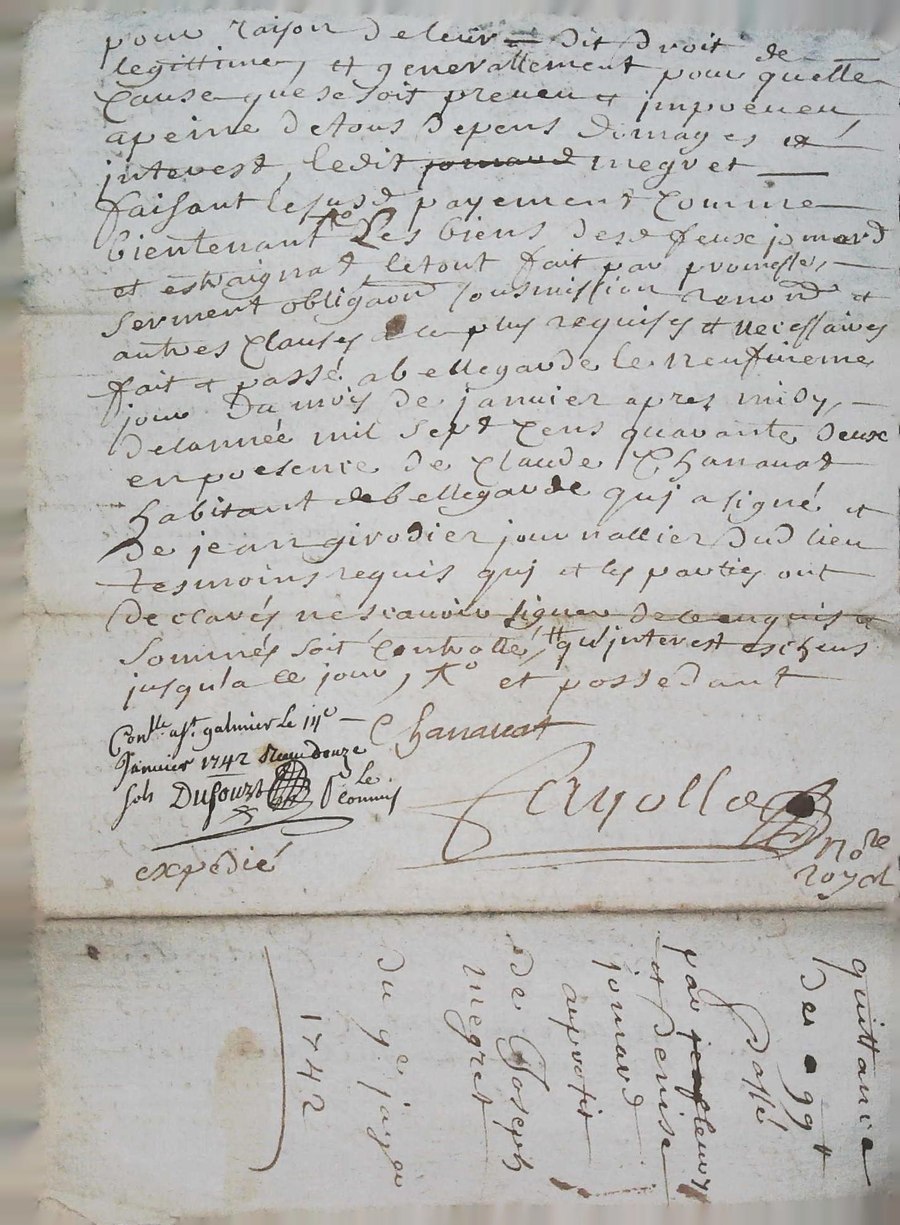 pour raison de leur dit droit de
legittime, et generallement pour quelle
cause que se soit preveu et impreveu
a peine de tous depens domages et
interest, ledit jomard megret
faisant le susd payement comme
bientenant les biens desd feux jomard
et estraignat, le tout fait par promesse,
serment obligaon sousmission renond et
autres clauses plus requises et necessaires
fait et passé a bellegarde le neufvieme
jour du mois de janvier apres midy,
de lannée mil sept cens quarante deux
en presence de Claude Chanavat
habitant de bellegarde qui a signé et
de jean girodier journallier dud lieu
tesmoins requis qui et les parties ont
declarés ne scavoir signer de ce enquis et
sommés soit controllé, # qu'interest escheus
jusqu'a ce jour, Xo et possedant
Chanavat
Conlle a st galmier le 11e
Janvier 1742 Receu douze
sols Dufour le
commis
fayolle
nore
royal
expedié
quittance
de 99 tt
passé
par fleurie
et Denise
jomard
au profit
de Joseph
megret
du 9e janver
1742